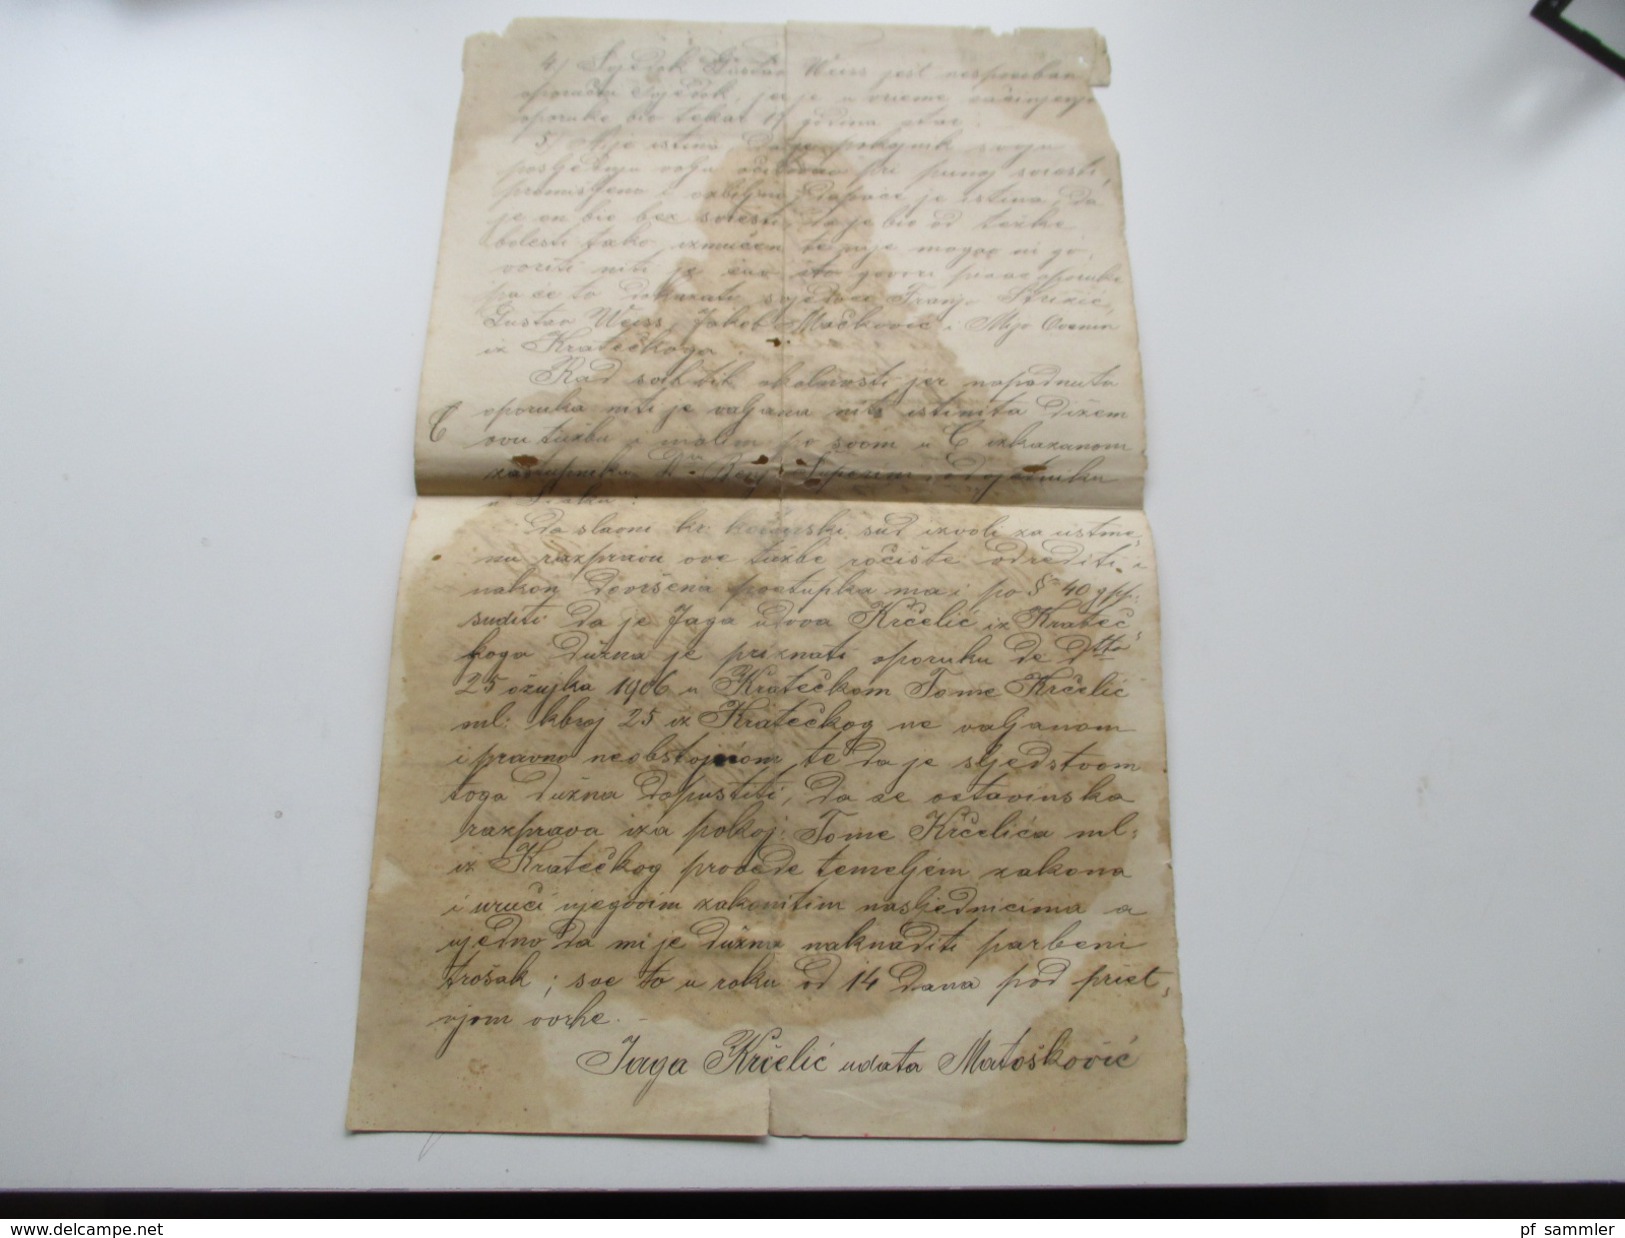 4/ Svjedok Gustav Weiss jest nesposoban
oporučni svjedok, jer je u vrieme sačinjenja
oporuke bio tekar 17 godina star.
5/ Nije istina da je pokojnik svoju
posljednju volju očitovao pri punoj sviesti,
promišljeno i ozbiljno; dapače je istina, da
je on bio bez sviesti, da je bio od težke
bolesti tako izmučen te nije mogao ni go-
voriti niti je čuo što govori
pa će to dokazati svjedoci Franjo
Gustav Weiss, Jakob Mačković i Mijo
iz Kratečkoga.
Rad ovih okolnosti jer napadnuta
oporuka niti je valjana niti istinita dižem
C ovu tužbu i molim po svom u C izkazanom
zastupniku Dru odvjetniku
u Sisku:
Da slavni kr. kotarski sud izvoli za ustme-
nu razpravu ove tužbe ročište odrediti i
nakon dovršena postupka ma i po § 40 gpp.
suditi: da je Jaga udova Krčelić iz Krateč-
koga dužna je priznati oporuku de dtto
25 ožujka 1906 u Kratečkom Tome Krčelić
ml: kbroj 25 iz Kratečkog ne valjanom
i pravno neobstojnom te da je sljedstvom
toga dužna dopustiti, da se ostavinska
razprava iza pokoj: Tome Krčelića ml:
iz Kratečkog provede temeljem zakona
i uruči njegovim zakonitim nasljednicima a
ujedno da mi je dužna naknaditi parbeni
trošak; sve to u roku od 14 dana pod priet-
njom ovrhe.
Jaga Krčelić udata Matošković
www.delcampe.net
pf_sammler